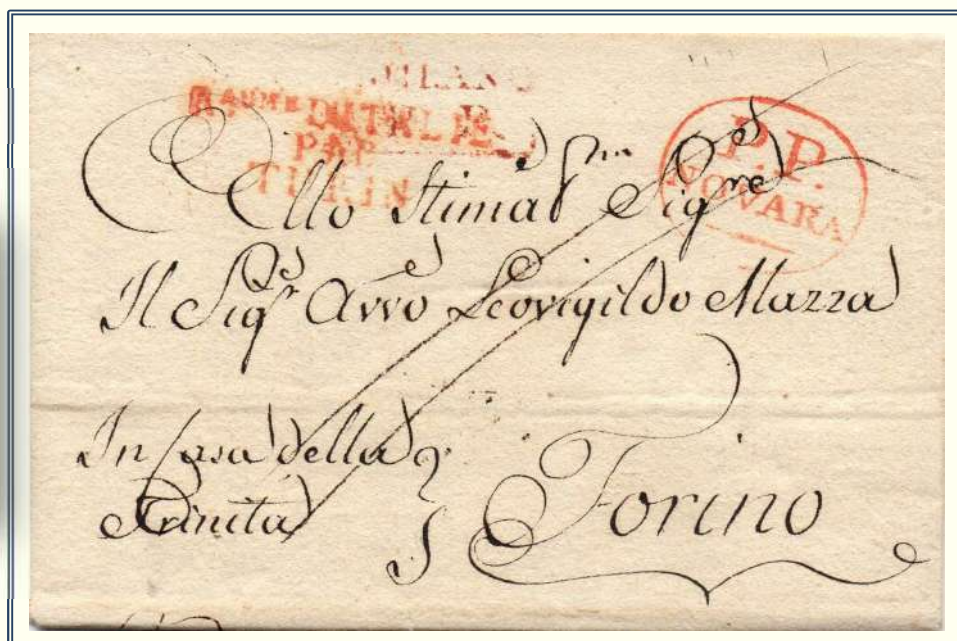 MILANO
L.I.
R.AUME D'ITALIE
PAR
TURIN
P.P.
NOVARA
Allo Stimad.mo Sig.re
Il Sig.r Avvo Leovigildo Mazza
In Casa della
Trinità
Torino